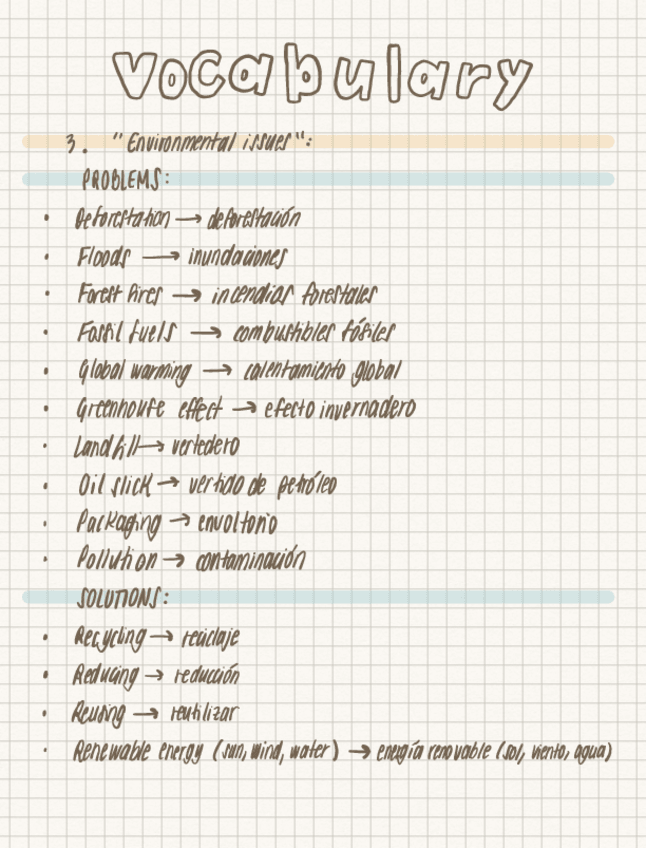 Vocabulary
3. "Environmental issues":
PROBLEMS:
• Deforestation → deforestación
• Floods → inundaciones
• Forest fires → incendios forestales
• Fossil fuels → combustibles fósiles
• Global warming → calentamiento global
• Greenhouse effect → efecto invernadero
• Landfill → vertedero
• Oil slick → vertido de petróleo
• Packaging → envoltorio
• Pollution → contaminación
SOLUTIONS:
• Recycling → reciclaje
• Reducing → reducción
• Reusing → reutilizar
• Renewable energy (sun, wind, water) → energía renovable (sol, viento, agua)